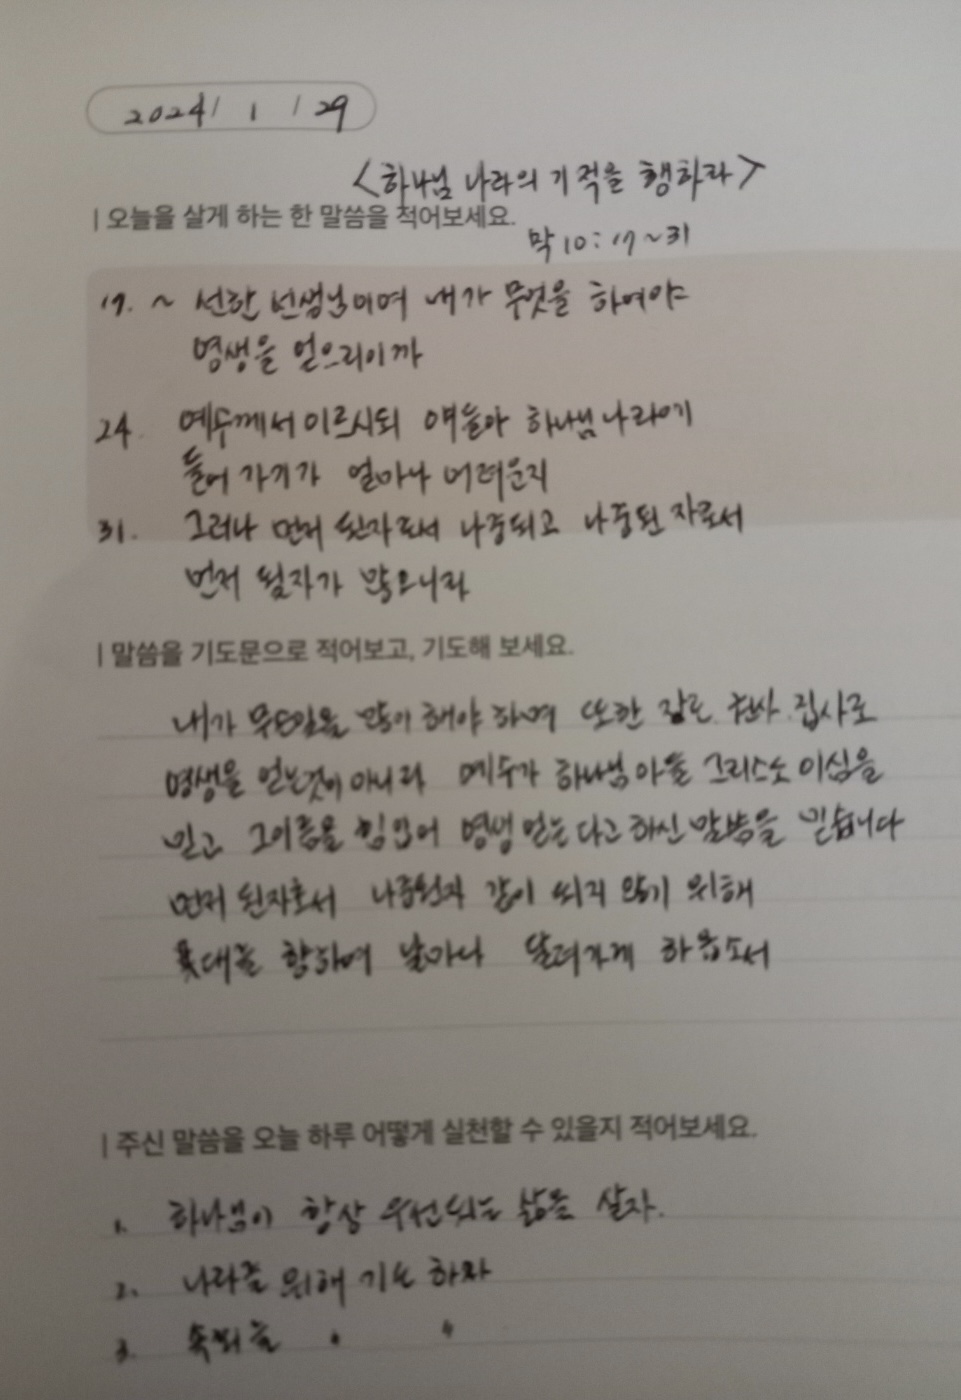 2024/ 1 / 29
<하나님 나라의 기적을 행하라>
| 오늘을 살게 하는 한 말씀을 적어보세요.
막 10: 17 ~ 31
17. ~ 선한 선생님이여 내가 무엇을 하여야
영생을 얻으리이까
24. 예수께서 이르시되 얘들아 하나님 나라에
들어 가기가 얼마나 어려운지
31. 그러나 먼저 된자로서 나중되고 나중된 자로서
먼저 될자가 많으니라
| 말씀을 기도문으로 적어보고, 기도해 보세요.
내가 무슨일을 많이 해야 하며 또한 장로. 권사. 집사로
영생을 얻는것이 아니라 예수가 하나님 아들 그리스도 이심을
믿고 그이름을 힘입어 영생 얻는다고 하신 말씀을 믿습니다
먼저 된자로서 나중된자 같이 되지 않기 위해
푯대를 향하여 날마다 달려가게 하옵소서
| 주신 말씀을 오늘 하루 어떻게 실천할 수 있을지 적어보세요.
1. 하나님이 항상 우선되는 삶을 살자.
2. 나라를 위해 기도 하자
3. 〃 〃